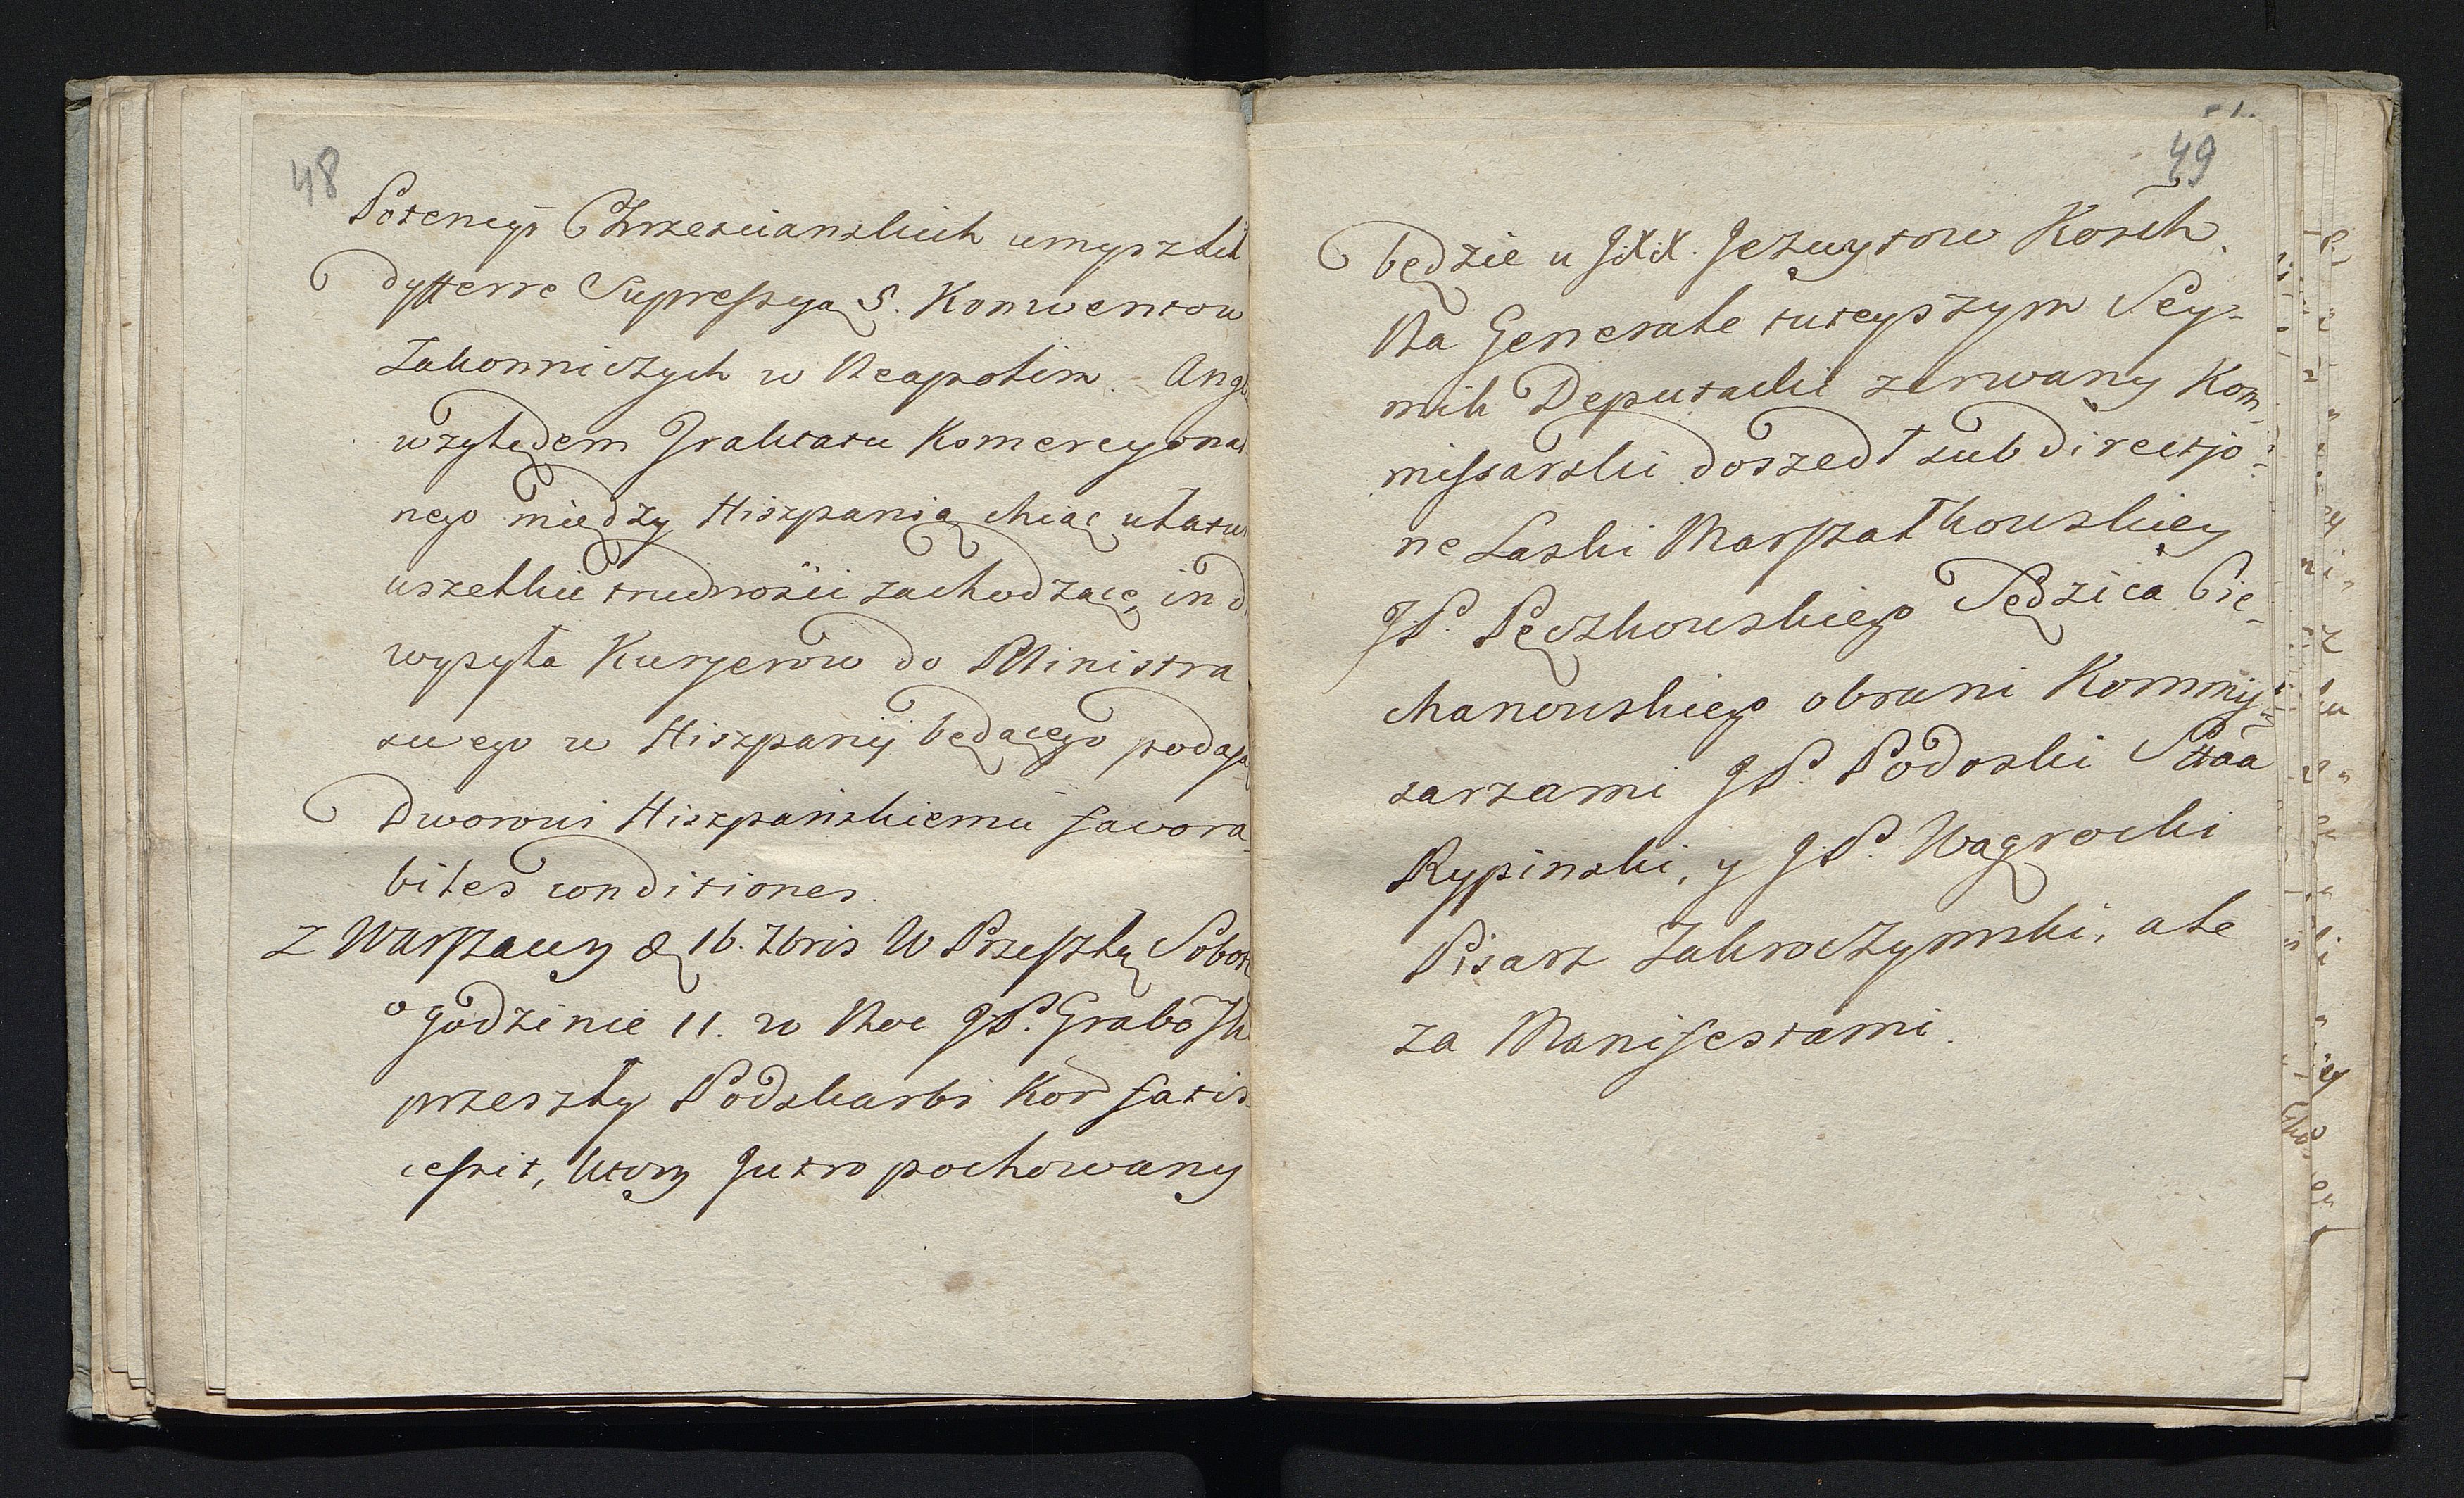 48
Potencyi Chrzescianskich umyszlił
dyfferre Supressyą S. Konwentow
Zakonniczych w Neapolim. - Angl
względem Traktatu Komercyonal
nego między Hiszpanią chcąc ułatw
uszelkie trudnosci zachodzące, in d
wysyła Kuryerow do Ministra
swego w Hiszpanij będącego podają
Dworowi Hiszpańskiemu favora-
biles conditiones.
Z Warszawy d. 16. 7bris W Przeszłą Sobot
o godzinie 11. w Noc JP. Grabo
przeszły Podskarbi Kor fatis
cessit, ktory Jutro pochowany
49
będzie u JXX. Jezuytow Kosch.
Na Generale tuteyszym Sey-
mik Deputacki zerwany Kom-
missarski doszedł sub directjo-
ne Laski Marszałkouskiey
JP. Pęczkouskiego Sędzica Cie-
chanouskiego obrani Kommis-
sarzami JP. Podoski Sttaa
Rypinski, y JP. Wągrocki
Pisarz Zakroczymski, ale
za Manifestami.